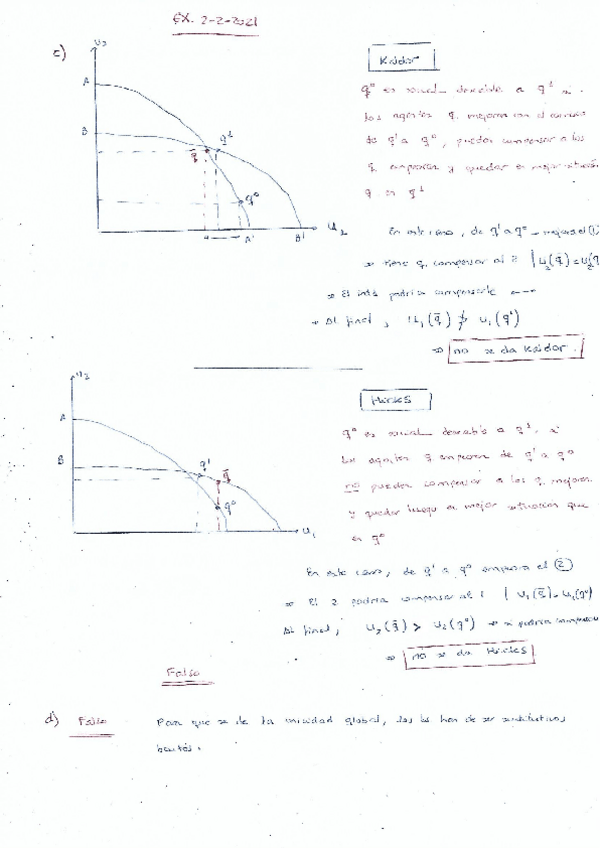 EX. 2-2-2021
c)
U2
A
B
q̄
q¹
q⁰
A'
B'
U2
Kaldor
q⁰ es social deseable a q¹ si
los agentes q mejoran con el cambio
de q¹ a q⁰, pueden compensar a los
q empeoran y quedar en mejor situación
q en q¹
En este caso, de q¹ a q⁰ mejora el (1)
⇒ tiene q compensar al 2 | U2(q̄) = U2(q
⇒ El podría compensarle
⇒ Al final, U1(q̄) ≯ U1(q¹)
⇒ no se da Kaldor.
U2
A
B
q¹
q̄
q⁰
U1
Hicks
q⁰ es social deseable a q¹ si
los agentes q empeoran de q¹ a q⁰
no pueden compensar a los q mejoran
y quedar luego en mejor situación que
en q⁰
En este caso, de q¹ a q⁰ empeora el (2)
⇒ El 2 podría compensar al 1 | U1(q̄) = U1(q⁰)
Al final, U2(q̄) > U2(q⁰) ⇒ si podría compensar
⇒ no se da Hicks
Falso
d) Falso Para que se de la unicidad global, los han de ser sustitutivos
brutos.